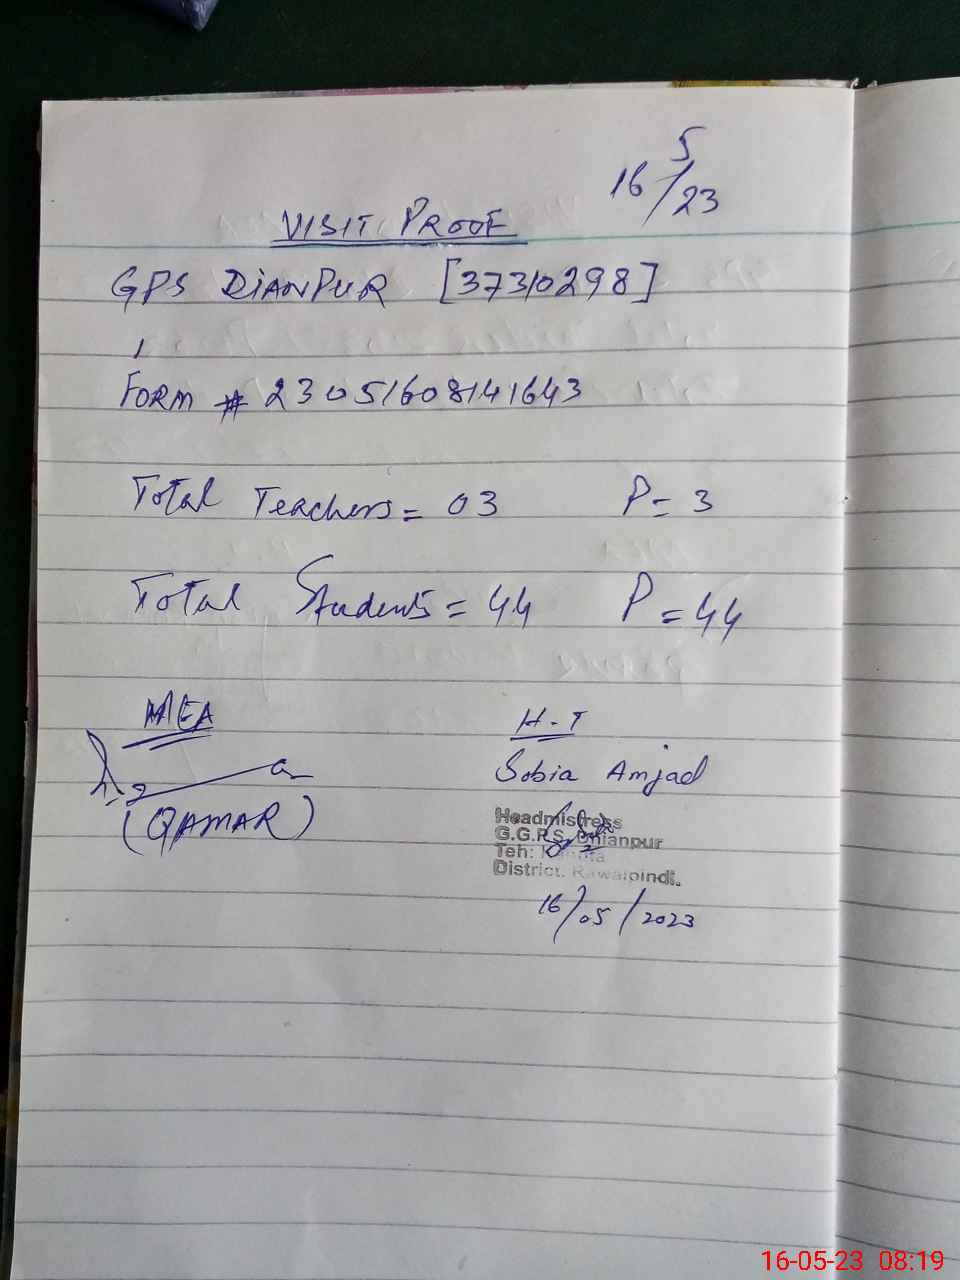 16/5/23
VISIT PROOF
GPS DIANPUR [37310298]
FORM # 23051608141643
Total Teachers = 03 P = 3
Total Students = 44 P = 44
MEA
(QAMAR)
H-T
Sobia Amjad
Headmistress
G.G.P.S. Dhianpur
Teh:
District. Rawalpindi.
16/05/2023
16-05-23 08:19